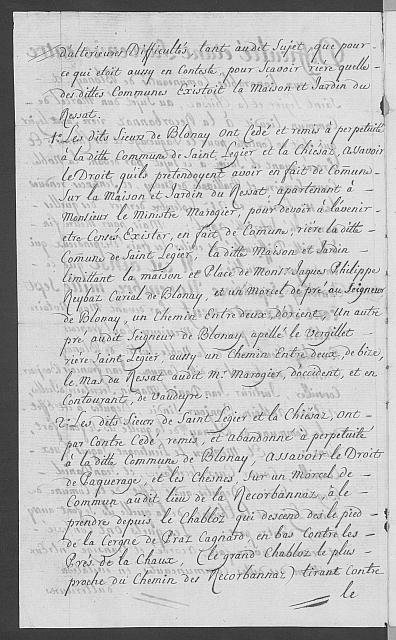 d'alterieures Difficultés, tant audit Sujet, que pour-
ce qui étoit aussy en Conteste, pour Scavoir riére quelle
des dittes Communes Existoit la Maison et Jardin du
Ressat.
1º Les dits Sieurs de Blonay ont Cedé et remis à perpetuité
à la ditte Commune de Saint Legier et la Chiésaz, assavoir
le Droit quils prétendoyent avoir en fait de Comune
Sur la Maison et Jardin du Ressat, apartenant à
Monsieur le Ministre Marogier, pour devoir à l'avenir
etre Censés Exister, en fait de Comune, riére la ditte
Comune de Saint Legier, la ditte Maison et Jardin
limittant la maison et Place de Monsr. Jaques Philippe
Reybaz Curial de Blonay, et un Morcel de pré au Seigneur
de Blonay, un Chemin Entre deux, d'orient, un autre
pré audit Seigneur de Blonay, apellé le Vergillet
riére Saint Legier, aussy un Chemin Entre deux, de bize,
le Mas du Ressat audit Mr. Marogier, d'occident, et en
Contourant, de Vaudeyre.
2º Les dits Sieurs de Saint Legier et la Chiésaz, ont
par Contre Cedé, remis, et abandonné à perpetuité
à la ditte Commune de Blonay, assavoir le Droit
de Paquerage, et les Chesnes, Sur un Morcel de
Commun audit lieu de la Recorbannaz, à le
prendre depuis le Chabloz qui descend dès le pied
de la Cergne de Praz Cagnard, en bas Contre les
Prés de la Chaux, (le grand Chabloz le plus
proche du Chemin des Recorbannaz) tirant Contre
le